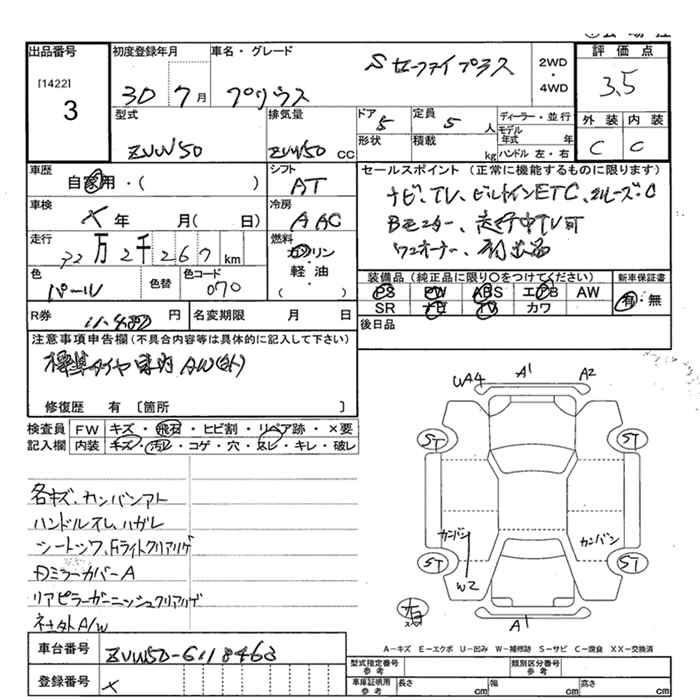 出品番号 初度登録年月 車名・グレード 評価点
[1422]
3
30 7月 プリウス Sセーフティプラス 2WD・4WD 3.5
型式 排気量 ドア 5 定員 5人 ディーラー・並行 外装 内装
ZVW50 ZVW50 CC 形状 積載 kg モデル年式 年 ハンドル 左・右 C C
車歴 自家用・( ) シフト AT セールスポイント (正常に機能するものに限ります)
ナビ、TV、ビルトインETC、クルーズC
車検 X 年 月( 日) 冷房 AAC Bモニター、走行中TV可
走行 万2千267km 燃料 ガソリン・軽・油・( ) ワンオーナー、
色 パール 色替 色コード 070 装備品 (純正品に限り〇をつけてください) 新車保証書
PS PW ABS エアB AW 有・無
SR ナビ TV カワ
R券 円 名変期限 月 日 後日品
注意事項申告欄 (不具合内容等は具体的に記入して下さい)
標準タイヤ 車内 AW(白)
修復歴 有 〔箇所 〕
検査員記入欄 FW キズ・飛石・ヒビ割・リペア跡・×要
内装 キズ・汚レ・コゲ・穴・スレ・キレ・破レ
UA4 A1 A2
ST ST
各キズ、カンバンアト
ハンドルスレ、ハガレ
シートシワ、Fライトクリアハゲ
カンバン カンバン
ST ST
W2
ミラーカバーA
リアピラーガーニッシュクリアハゲ
社外A/W
A1
A-キズ E-エクボ U-凹み W-補修跡 S-サビ C-腐食 XX-交換済
車台番号 ZVW50-6118463
型式指定番号 参考 類別区分番号 参考
登録番号 X
車庫証明用 参考 長さ cm 幅 cm 高さ cm